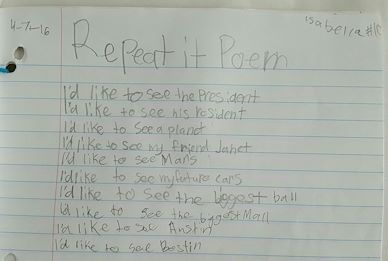 4-7-16
isabella #10
Repeat it Poem
I'd like to see the President
I'd like to see his resident
I'd like to see a planet
I'd like to see my friend Janet
I'd like to see Mars
I'd like to see my future cars
I'd like to see the biggest ball
I'd like to see the biggest Mall
I'd like to see Austin
I'd like to see Bostin